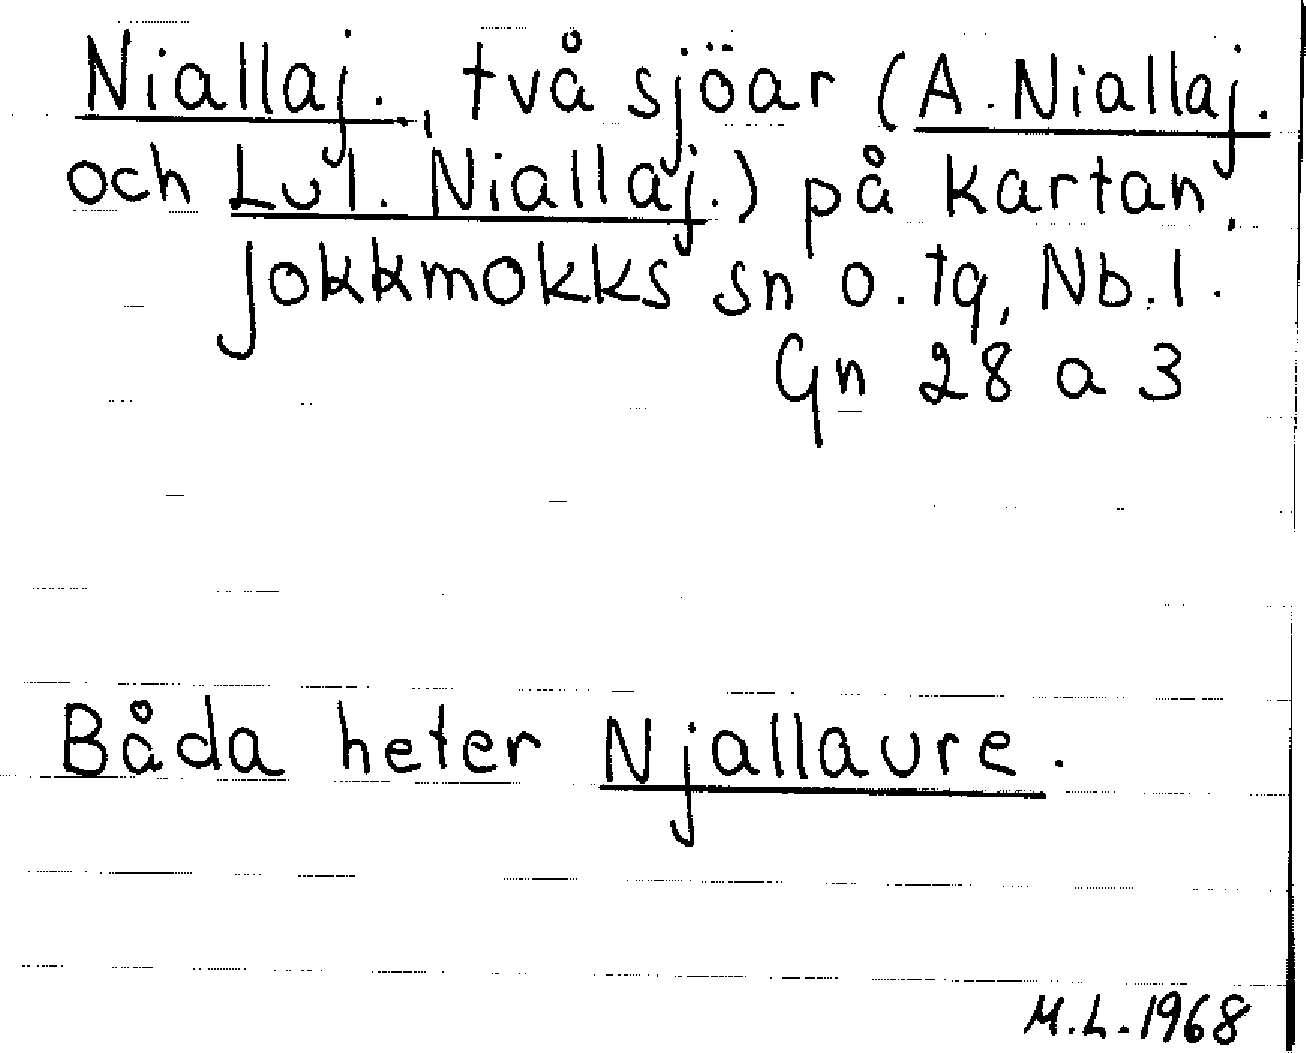 Niallaj., två sjöar (A. Niallaj.
och Lul. Niallaj.) på kartan,
Jokkmokks sn o. tg, Nb. l.
Gn 28 a 3
Båda heter Njallaure.
M.L. 1968